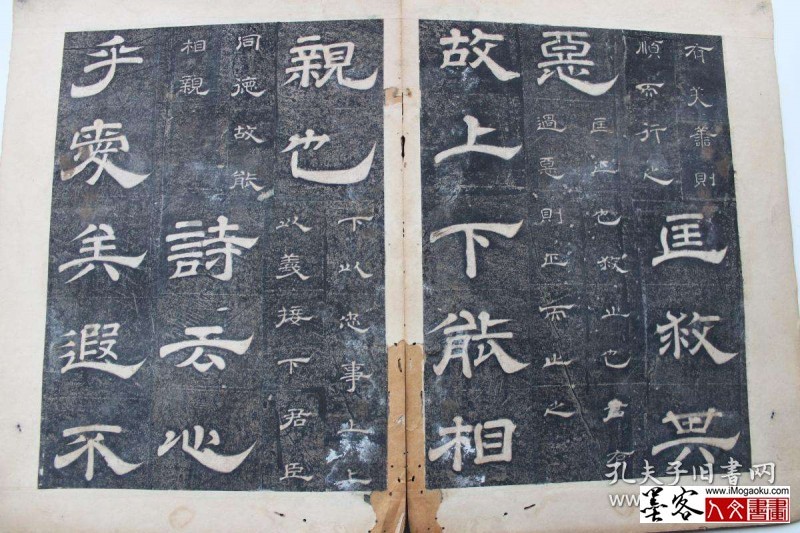 有美善則
順而行之
匡救其
惡
匡正也救止也君有
過惡則正而止之
故上下能相
親也
下以忠事上上
以義接下君臣
同德故能
相親
詩云心
乎愛矣遐不
孔夫子旧書网
www.iMogaoku.com
墨客
人文書畫